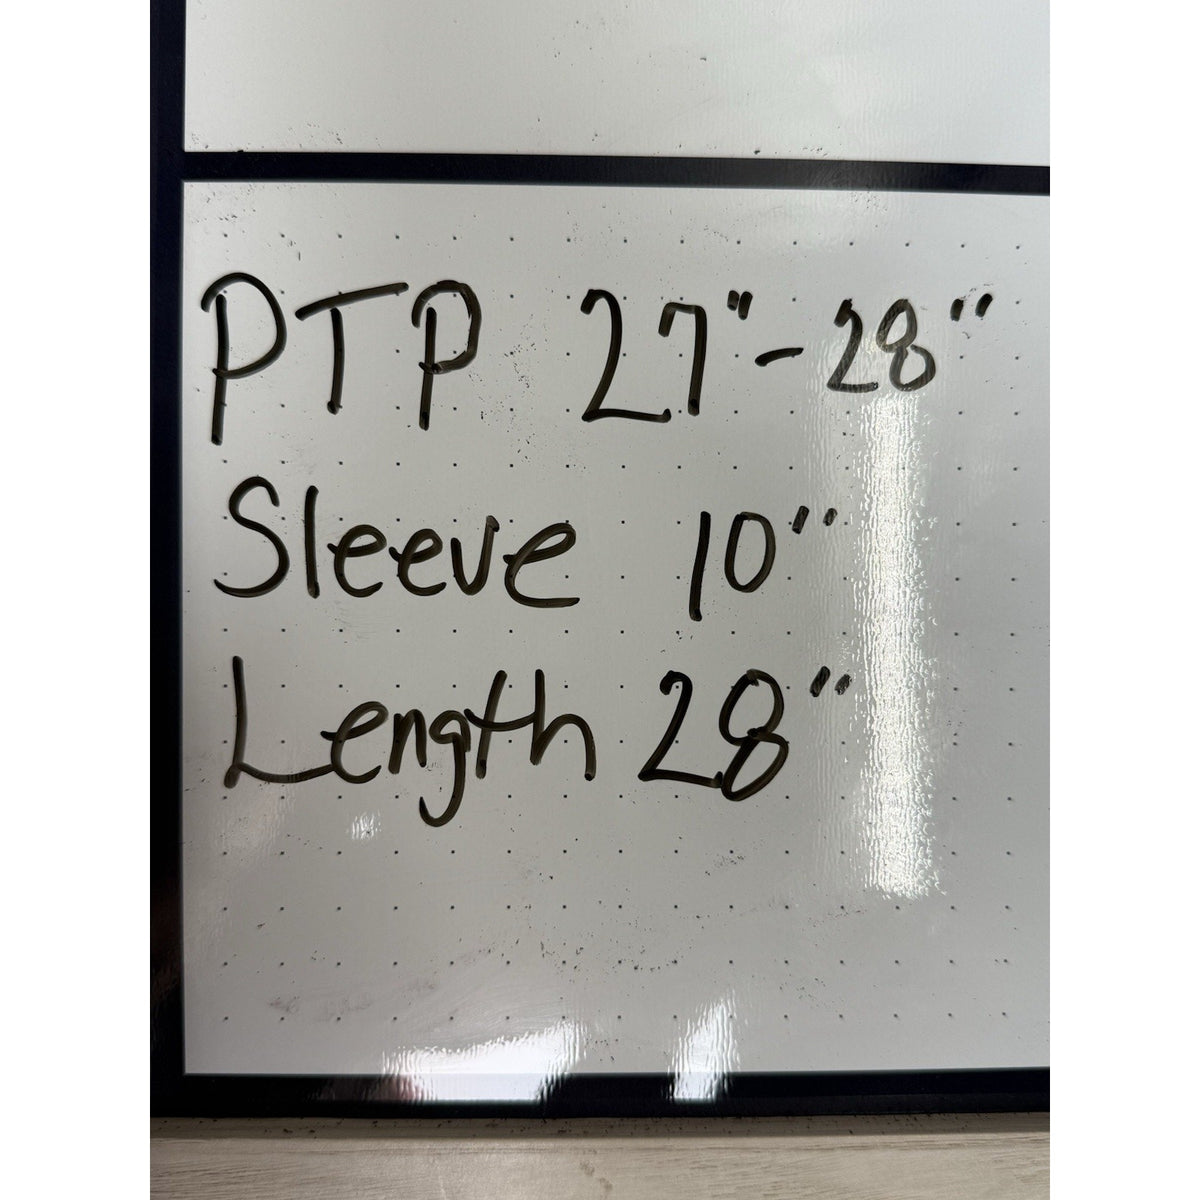 PTP 27"-28"
Sleeve 10"
Length 28"